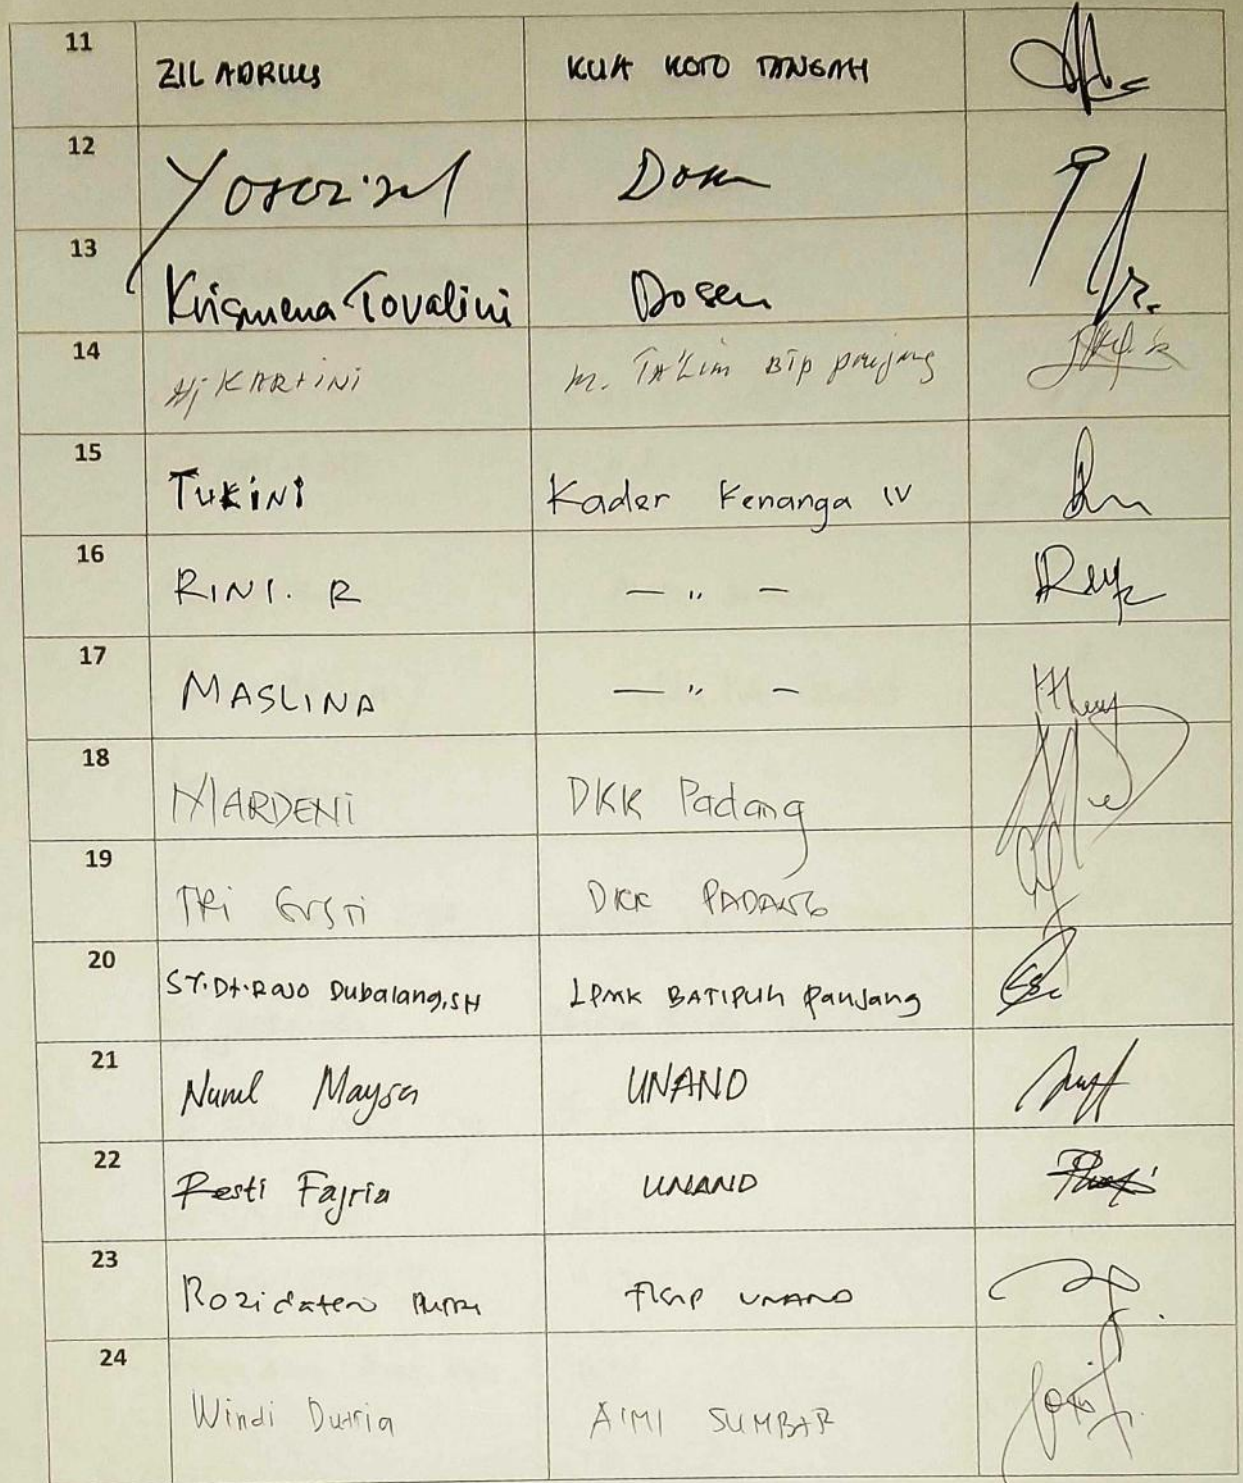 11 ZIL ADRIUS KUA KOTO TANGAH
12 Yoserizal Dosen
13 Krismena Tovalini Dosen
14 Hj KARTINI M. TA'Lim BTP panjang
15 TUKINI Kader Kenanga IV
16 RINI. R — " —
17 MASLINA — " —
18 MARDENI DKK Padang
19 TRI GUSTI DKK PADANG
20 ST. Dt. RAJO Dubalang, SH LPMK BATIPUH Panjang
21 Nurul Maysa UNAND
22 Resti Fajria UNAND
23 Rozidateno FISIP UNAND
24 Windi Dutria AIMI SUMBAR